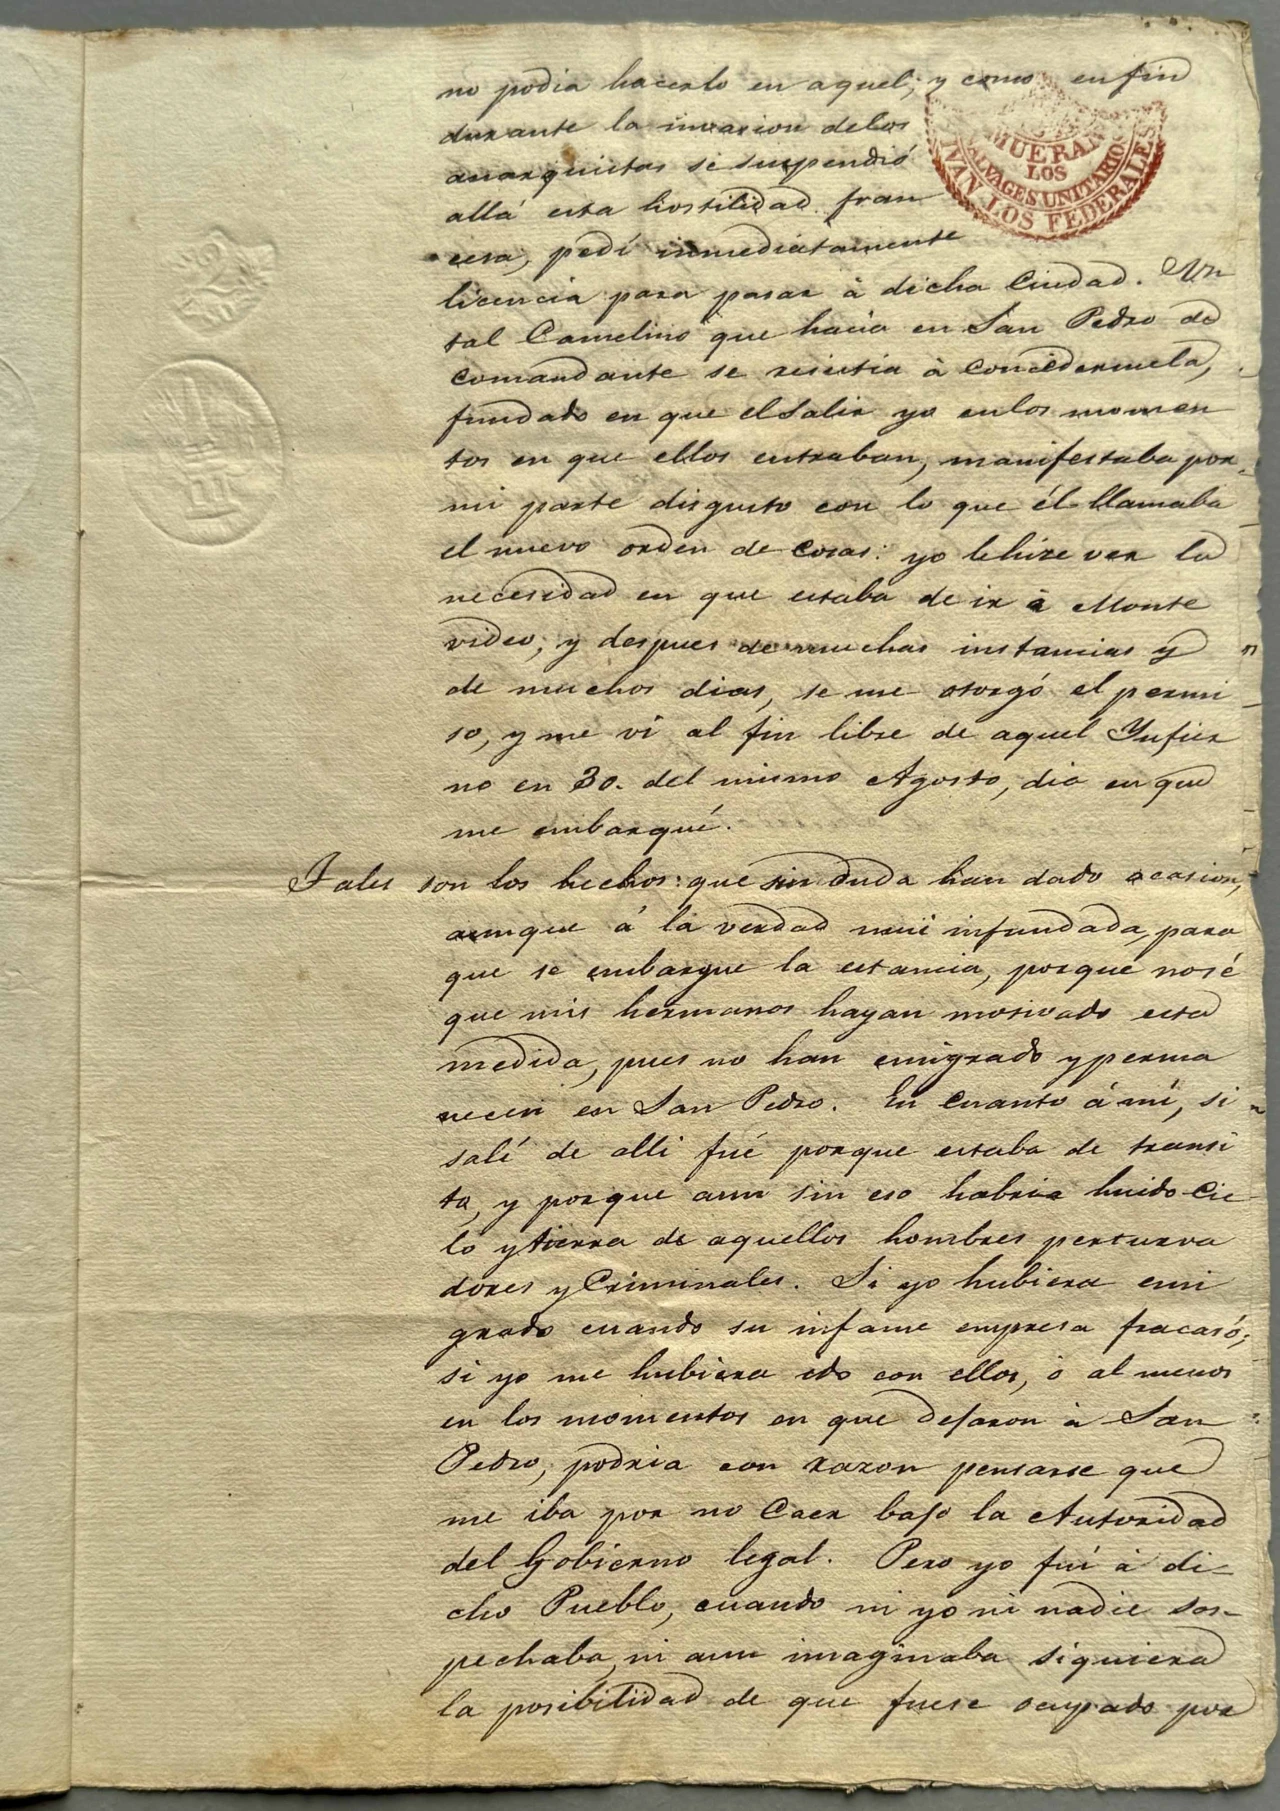 no podia hacerlo en aquel; y como en fin
durante la invasion delos
anarquistas se suspendió
allá esta hostilidad fran
cesa, pedí inmediatamente
MUERAN
LOS
SALVAGES UNITARIOS
VIVAN LOS FEDERALES
licencia para pasar à dicha Ciudad. Un
tal Camelino que hacia en San Pedro de
comandante se resistia à concedermela,
fundado en que el salir yo enlos momen
tos en que ellos entraban, manifestaba por
mi parte disgusto con lo que él llamaba
el nuevo orden de cosas: yo lehize ver la
necesidad en que estaba de ir à Monte
video; y despues de muchas instancias y
de muchos dias, se me otorgó el permi
so, y me ví al fin libre de aquel Infier
no en 30. del mismo Agosto, dia en que
me embarqué.
Tales son los hechos: que sin duda han dado ocasion,
aunque á la verdad mui infundada, para
que se embargue la estancia, porque nosé
que mis hermanos hayan motivado esta
medida, pues no han emigrado y perma
necen en San Pedro. En cuanto á mí, si
salí de alli fué porque estaba de transi
to, y porque aun sin eso habria huido Cie
lo y tierra de aquellos hombres perturva
dores y Criminales. Si yo hubiera emi
grado cuando su infame empresa fracasó;
si yo me hubiera ido con ellos, ó al menos
en los momentos en que dejaron à San
Pedro, podria con razon pensarse que
me iba por no Caer bajo la Autoridad
del Gobierno legal. Pero yo fuí à di-
cho Pueblo, cuando ni yo ni nadie sos-
pechaba, ni aun imaginaba siquiera
la posibilidad de que fuese ocupado por